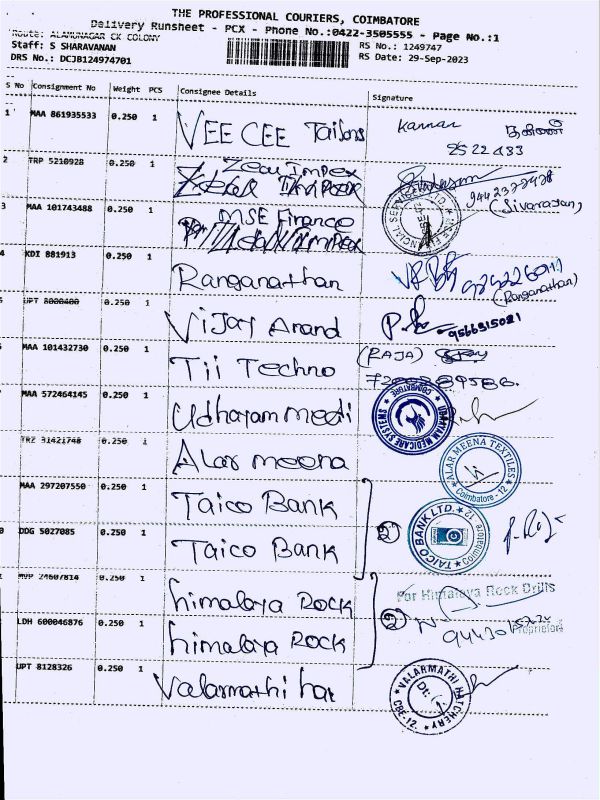 THE PROFESSIONAL COURIERS, COIMBATORE
Delivery Runsheet - PCX - Phone No.:0422-3505555 - Page No.:1
Route: ALAMUNAGAR CK COLONY
Staff: S SHARAVANAN RS No.: 1249747
DRS No.: DCJB124974701 RS Date: 29-Sep-2023
S No Consignment No Weight PCS Consignee Details Signature
1 MAA 861935533 0.250 1 VEE CEE Tailons Kannan
2522433
2 TRP 5210928 0.250 1 Zean Impex
(Sivarajan)
3 MAA 101743488 0.250 1 MSE Finance
KDI 881913 0.250 1 Ranganathan
(Ranganathan)
UPT 8000400 0.250 1 Vijay Anand 9566315021
MAA 101432730 0.250 1 Tii Techno (RAJA)
MAA 572464145 0.250 1 Udhayam medi UDHAYAM MEDICARE SYSTEMS COIMBATORE
TRZ 31421748 0.250 1 Alar meena ALAR MEENA TEXTILES Coimbatore - 12
MAA 297207550 0.250 1 Taico Bank
DDG 5027085 0.250 1 Taico Bank (2) TAICO BANK LTD. Coimbatore 12
MVP 24607814 0.250 1 himalaya ROCK For Himalaya Rock Drills
LDH 600046876 0.250 1 himalaya ROCK (2) Proprietor
UPT 8128326 0.250 1 Valarmathi hat VALARMATHI HATCHERY CBE-12. Dt: